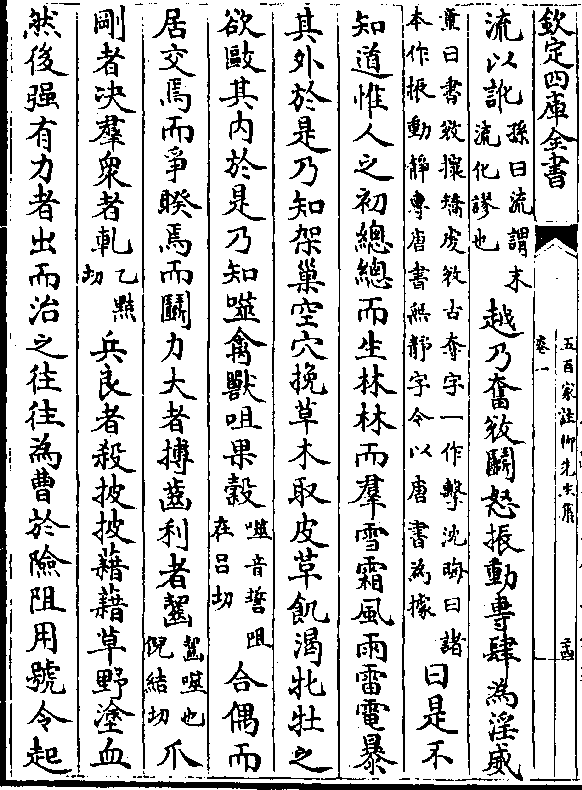 欽定四庫全書
五百家註柳先生集
卷一
流以訛孫曰流謂末流化謬也越乃奮敓鬬怒振動專肆為淫威
童曰書敓攘矯虔敓古奪字一作擊沈晦曰諸本作振動靜專唐書無靜字今以唐書為據曰是不
知道惟人之初總總而生林林而羣雪霜風雨雷電暴
其外於是乃知架巢空穴挽草木取皮草飢渴牝牡之
欲敺其内於是乃知噬禽獸咀果穀噬音誓咀在吕切合偶而
居交焉而爭睽焉而鬬力大者搏齒利者齧齧噬也倪結切爪
剛者决羣衆者軋乙黠切兵良者殺披披藉藉草野塗血
然後强有力者出而治之往往為曹於險阻用號令起